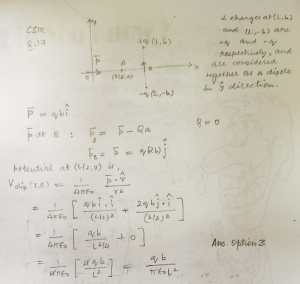 CSIR
Q.17
y
+q (L, b)
p
(L/2, 0)
-q (L, -b)
x
2 charges at (L, b)
and (L, -b) are
+q and -q
respectively, and
are considered
together as a dipole
in ŷ direction.
p = qb î
p at B : p_B = p - Qa
Q = 0
p_B = p = q2b ĵ
Potential at (L/2, 0) is,
V_dip (r, θ) = 1/4πε₀ p·r̂/r²
= 1/4πε₀ [ qb î·î/(L/2)² + 2qb ĵ·î/(L/2)² ]
= 1/4πε₀ [ qb/L²/4 + 0 ]
= 1/4πε₀ [ 4qb/L² ] = qb/πε₀L²
Ans. Option 3